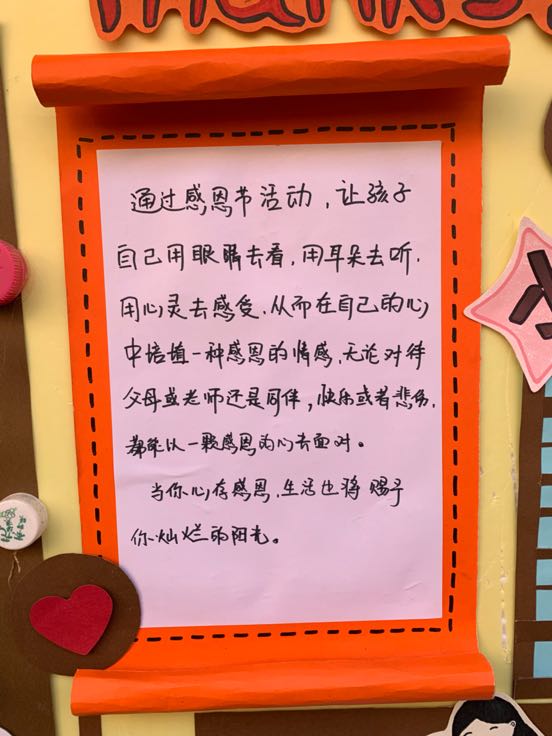 通过感恩节活动，让孩子
自己用眼睛去看，用耳朵去听，
用心灵去感受，从而在自己的心
中培植一种感恩的情感，无论对待
父母或老师还是同伴，快乐或者悲伤，
都能以一颗感恩的心去面对。
当你心存感恩，生活也将赐予
你灿烂的阳光。